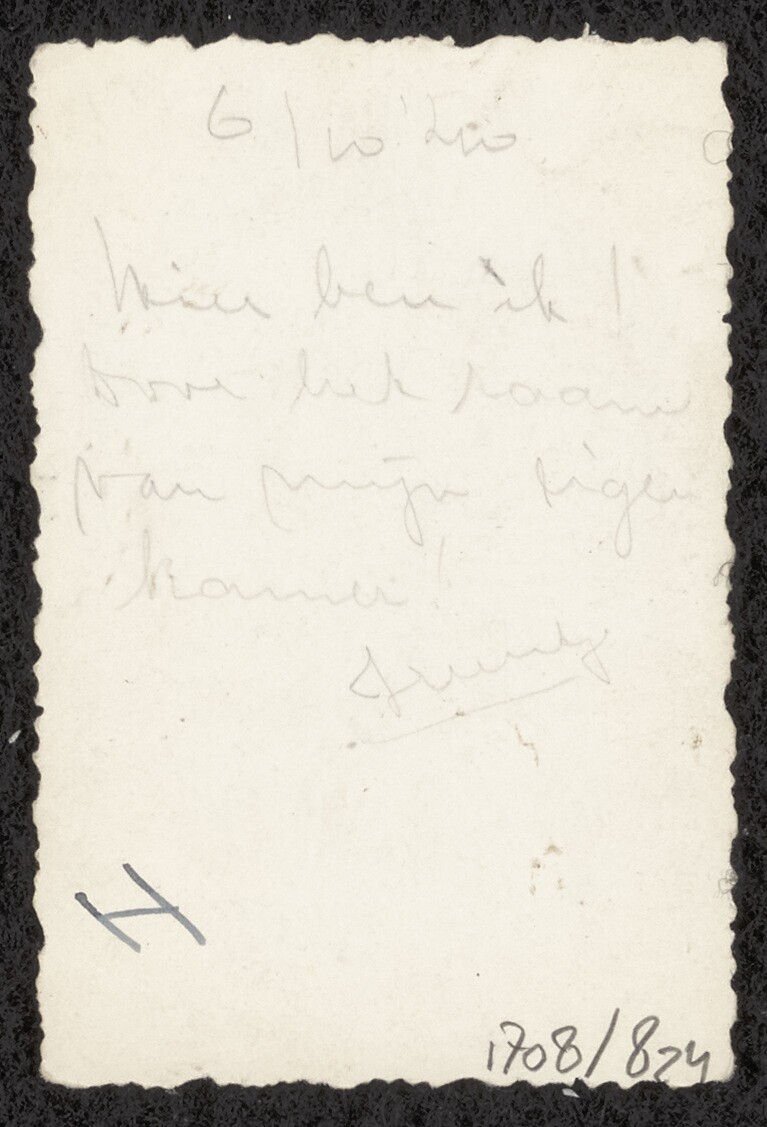 6/10 '40
Hier ben ik!
Voor het raam
van mijn eigen
kamer!
H
1708/824